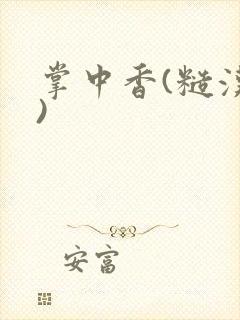 掌中香(糙
)
安富